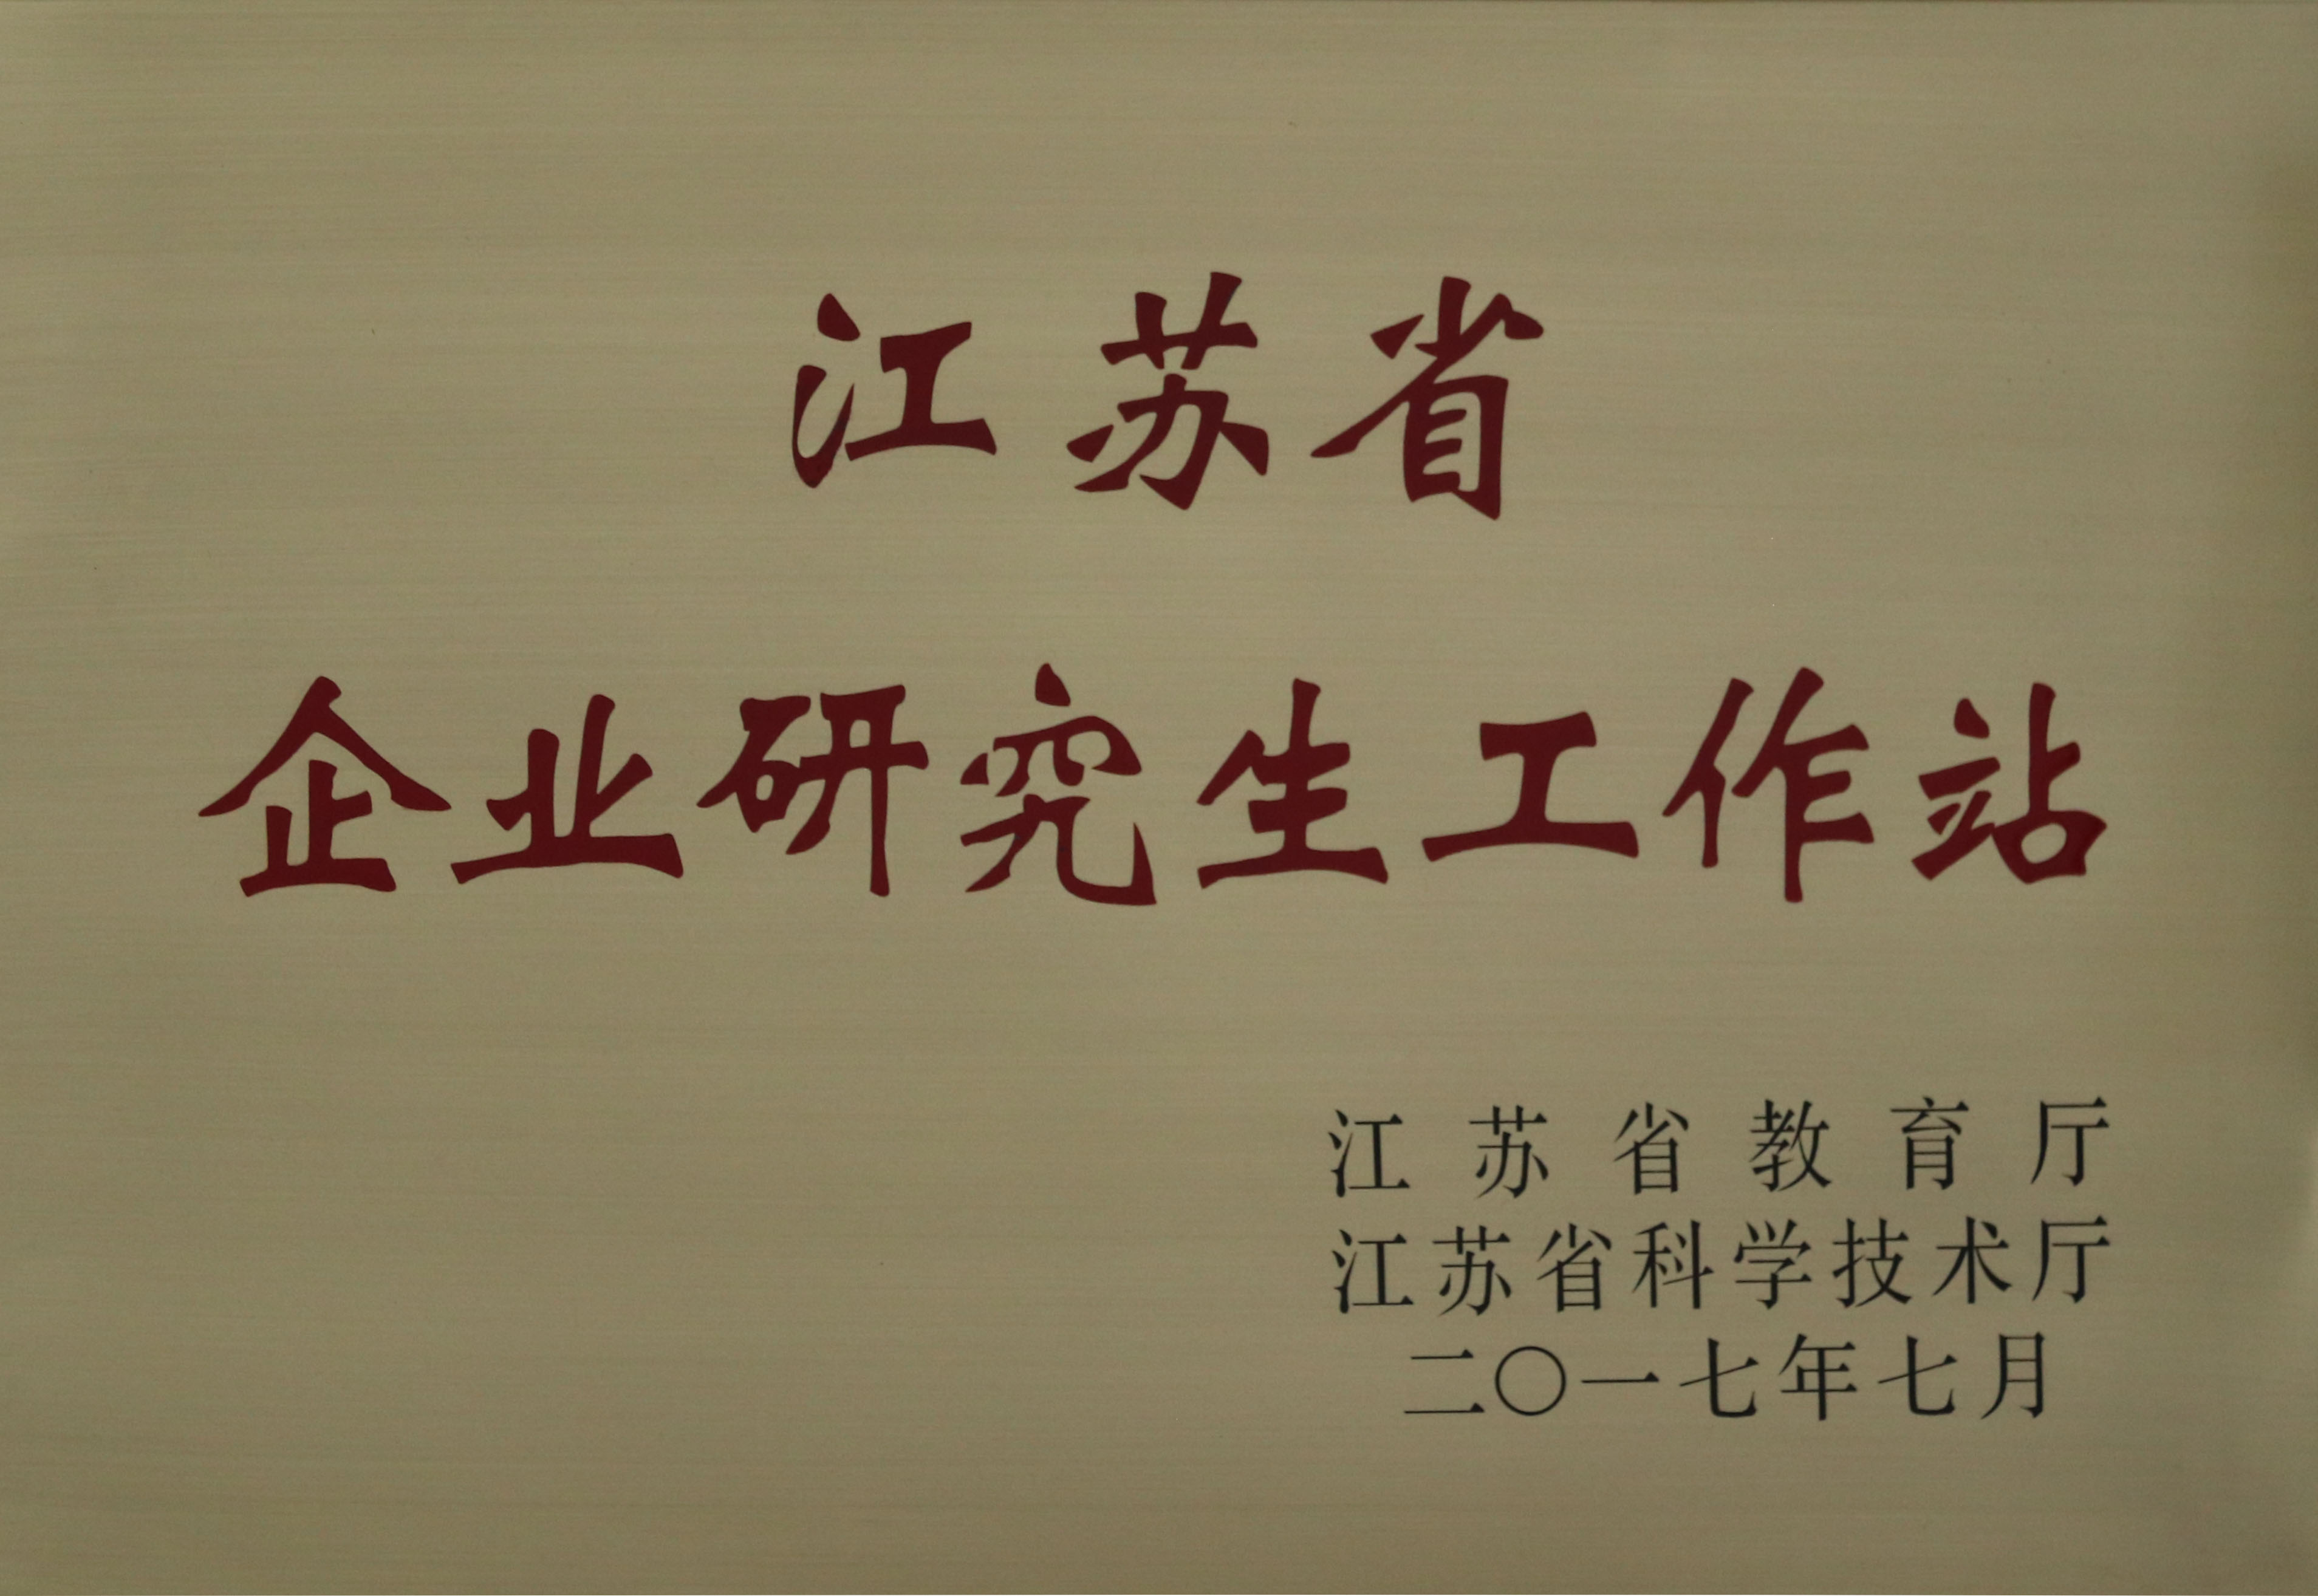 江苏省
企业研究生工作站
江苏省教育厅
江苏省科学技术厅
二〇一七年七月